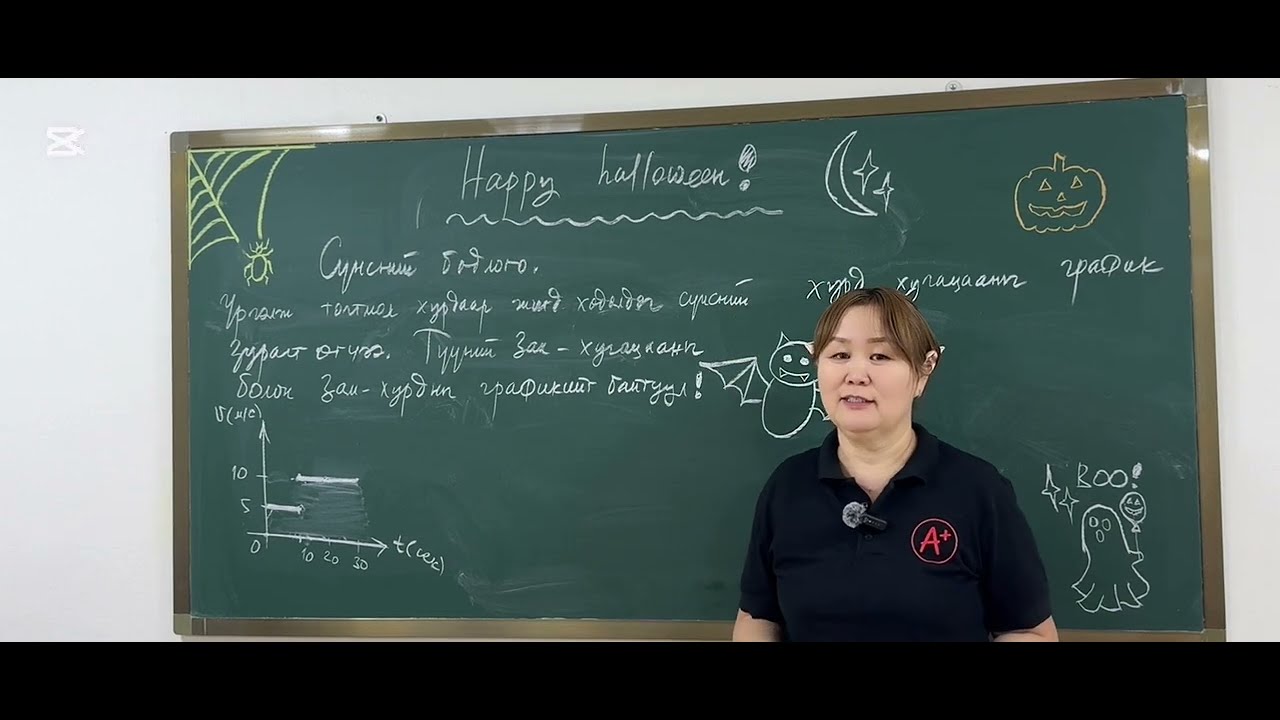 Happy halloween!
Сүнсний бодлого.
Үргэлж тогтмол хурдаар жигд хөдөлдөг сүнсний хурд хугацааны график
Зурагт өгчээ. Түүний Зам - хугацааны
болон Зам-хурдны графикийг байгуул!
V(м/с)
10
5
0
10 20 30
t(сек)
BOO!
A+